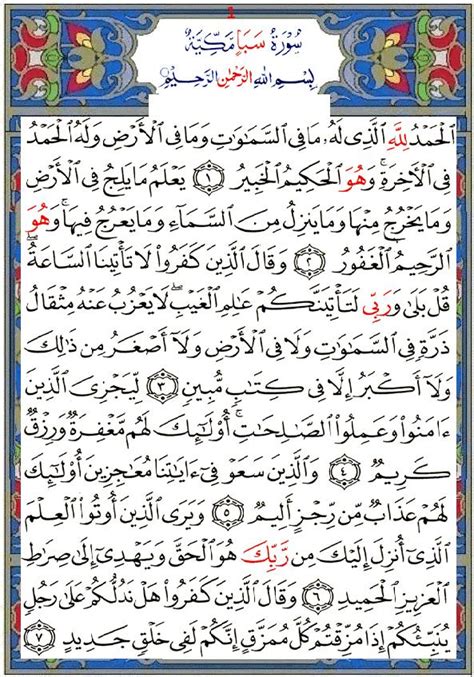 1
سُورَةُ سَبَإٍ مَكِّيَّةٌ
بِسْمِ اللهِ الرَّحْمٰنِ الرَّحِيمِ
ٱلْحَمْدُ لِلَّهِ ٱلَّذِى لَهُۥ مَا فِى ٱلسَّمَٰوَٰتِ وَمَا فِى ٱلْأَرْضِ وَلَهُ ٱلْحَمْدُ
فِى ٱلْأَخِرَةِ ۚ وَهُوَ ٱلْحَكِيمُ ٱلْخَبِيرُ ۝١ يَعْلَمُ مَا يَلِجُ فِى ٱلْأَرْضِ
وَمَا يَخْرُجُ مِنْهَا وَمَا يَنزِلُ مِنَ ٱلسَّمَآءِ وَمَا يَعْرُجُ فِيهَا ۚ وَهُوَ
ٱلرَّحِيمُ ٱلْغَفُورُ ۝٢ وَقَالَ ٱلَّذِينَ كَفَرُوا۟ لَا تَأْتِينَا ٱلسَّاعَةُ ۖ
قُلْ بَلَىٰ وَرَبِّى لَتَأْتِيَنَّكُمْ عَٰلِمِ ٱلْغَيْبِ ۖ لَا يَعْزُبُ عَنْهُ مِثْقَالُ
ذَرَّةٍ فِى ٱلسَّمَٰوَٰتِ وَلَا فِى ٱلْأَرْضِ وَلَآ أَصْغَرُ مِن ذَٰلِكَ
وَلَآ أَكْبَرُ إِلَّا فِى كِتَٰبٍ مُّبِينٍ ۝٣ لِّيَجْزِىَ ٱلَّذِينَ
ءَامَنُوا۟ وَعَمِلُوا۟ ٱلصَّٰلِحَٰتِ ۚ أُو۟لَٰٓئِكَ لَهُم مَّغْفِرَةٌ وَرِزْقٌ
كَرِيمٌ ۝٤ وَٱلَّذِينَ سَعَوْ فِىٓ ءَايَٰتِنَا مُعَٰجِزِينَ أُو۟لَٰٓئِكَ
لَهُمْ عَذَابٌ مِّن رِّجْزٍ أَلِيمٌ ۝٥ وَيَرَى ٱلَّذِينَ أُوتُوا۟ ٱلْعِلْمَ
ٱلَّذِىٓ أُنزِلَ إِلَيْكَ مِن رَّبِّكَ هُوَ ٱلْحَقَّ وَيَهْدِىٓ إِلَىٰ صِرَٰطِ
ٱلْعَزِيزِ ٱلْحَمِيدِ ۝٦ وَقَالَ ٱلَّذِينَ كَفَرُوا۟ هَلْ نَدُلُّكُمْ عَلَىٰ رَجُلٍ
يُنَبِّئُكُمْ إِذَا مُزِّقْتُمْ كُلَّ مُمَزَّقٍ إِنَّكُمْ لَفِى خَلْقٍ جَدِيدٍ ۝٧